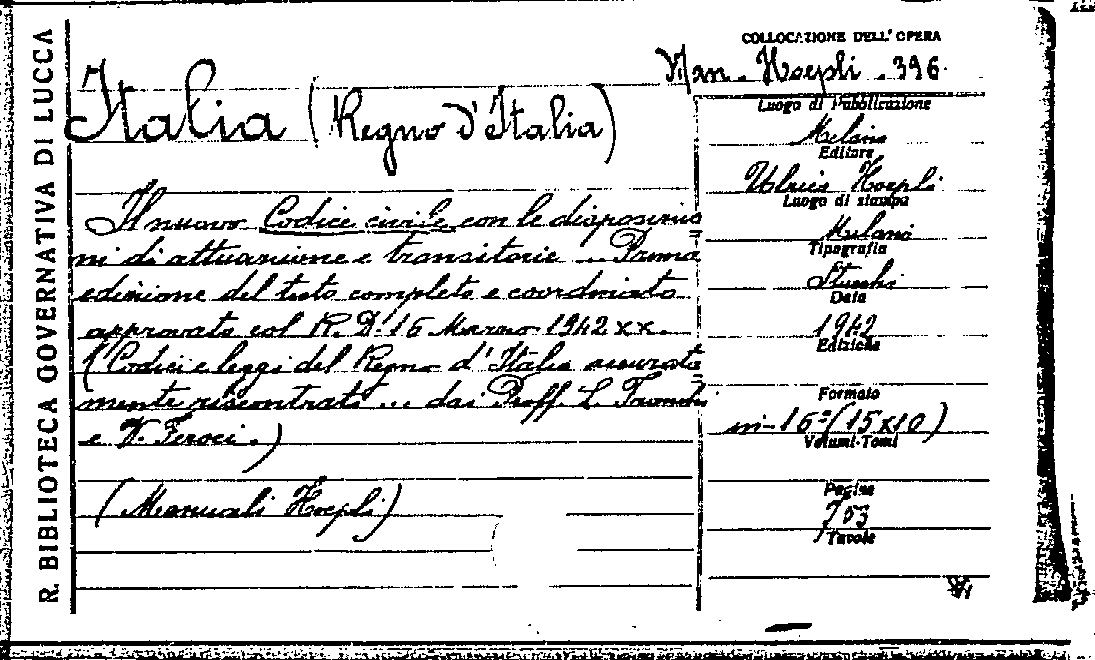 R. BIBLIOTECA GOVERNATIVA DI LUCCA
COLLOCAZIONE DELL'OPERA
Man. Hoepli. 396.
Italia (Regno d'Italia)
Il nuovo Codice civile con le disposizio=
ni di attuazione e transitorie ... Prima
edizione del testo completo e coordinato
approvato col R. D. 16 Marzo 1942 XX.
(Codici e leggi del Regno d'Italia accurata=
mente riscontrati ... dai Proff. L. Franchi
e V. Feroci.)
(Manuali Hoepli)
Luogo di Pubblicazione
Milano
Editore
Ulrico Hoepli
Luogo di stampa
Milano
Tipografia
Stucchi
Data
1942
Edizione
Formato
in-16º (15x10)
Volumi-Tomi
Pagine
703
Tavole